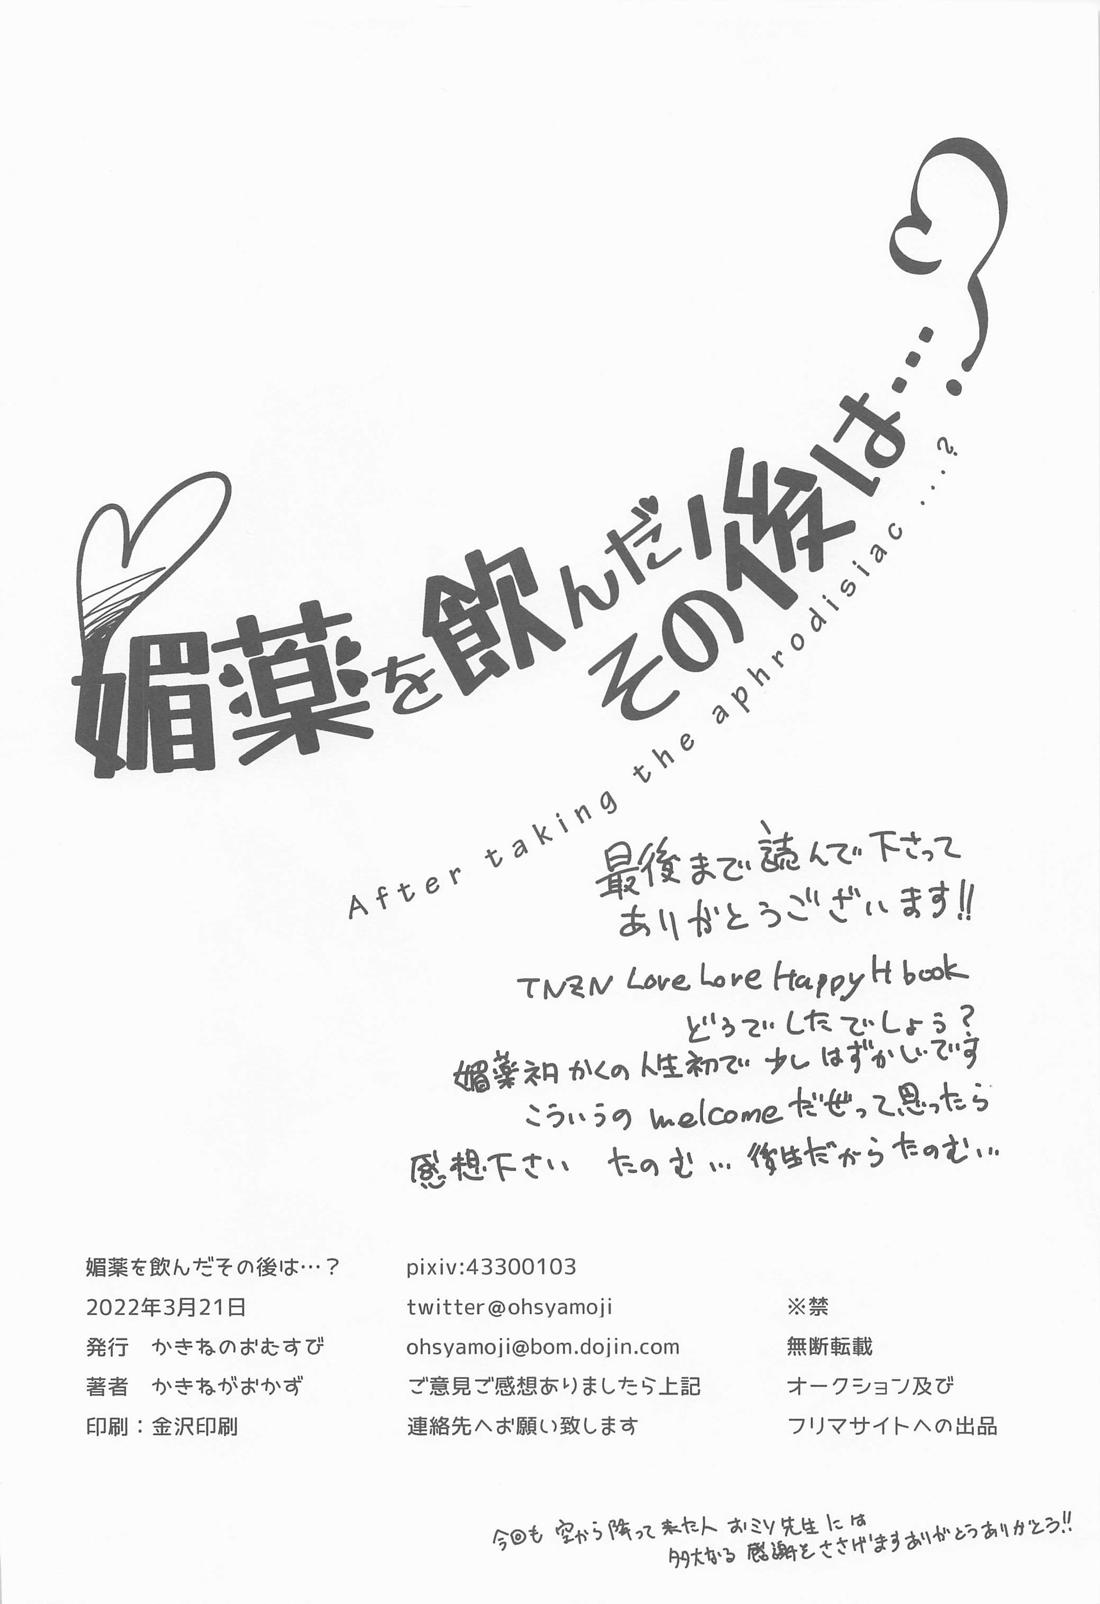 媚薬を飲んだ
その後は…?
After taking the aphrodisiac ...?
最後まで読んで下さって
ありがとうございます!!
TNZN Love Love Happy H book
どうでしたでしょう?
媚薬ネタかくの人生初で 少しはずかしいです
こういうの welcomeだぜって思ったら
感想下さい たのむ… 後生だからたのむ…
媚薬を飲んだその後は…?
2022年3月21日
発行 かきねのおむすび
著者 かきねがおかず
印刷:金沢印刷
pixiv:43300103
twitter@ohsyamoji
ohsyamoji@bom.dojin.com
ご意見ご感想ありましたら上記
連絡先へお願い致します
※禁
無断転載
オークション及び
フリマサイトへの出品
今回も 空から降って来た人 おミソ先生には
多大なる 感謝をささげますありがとうありがとう!!